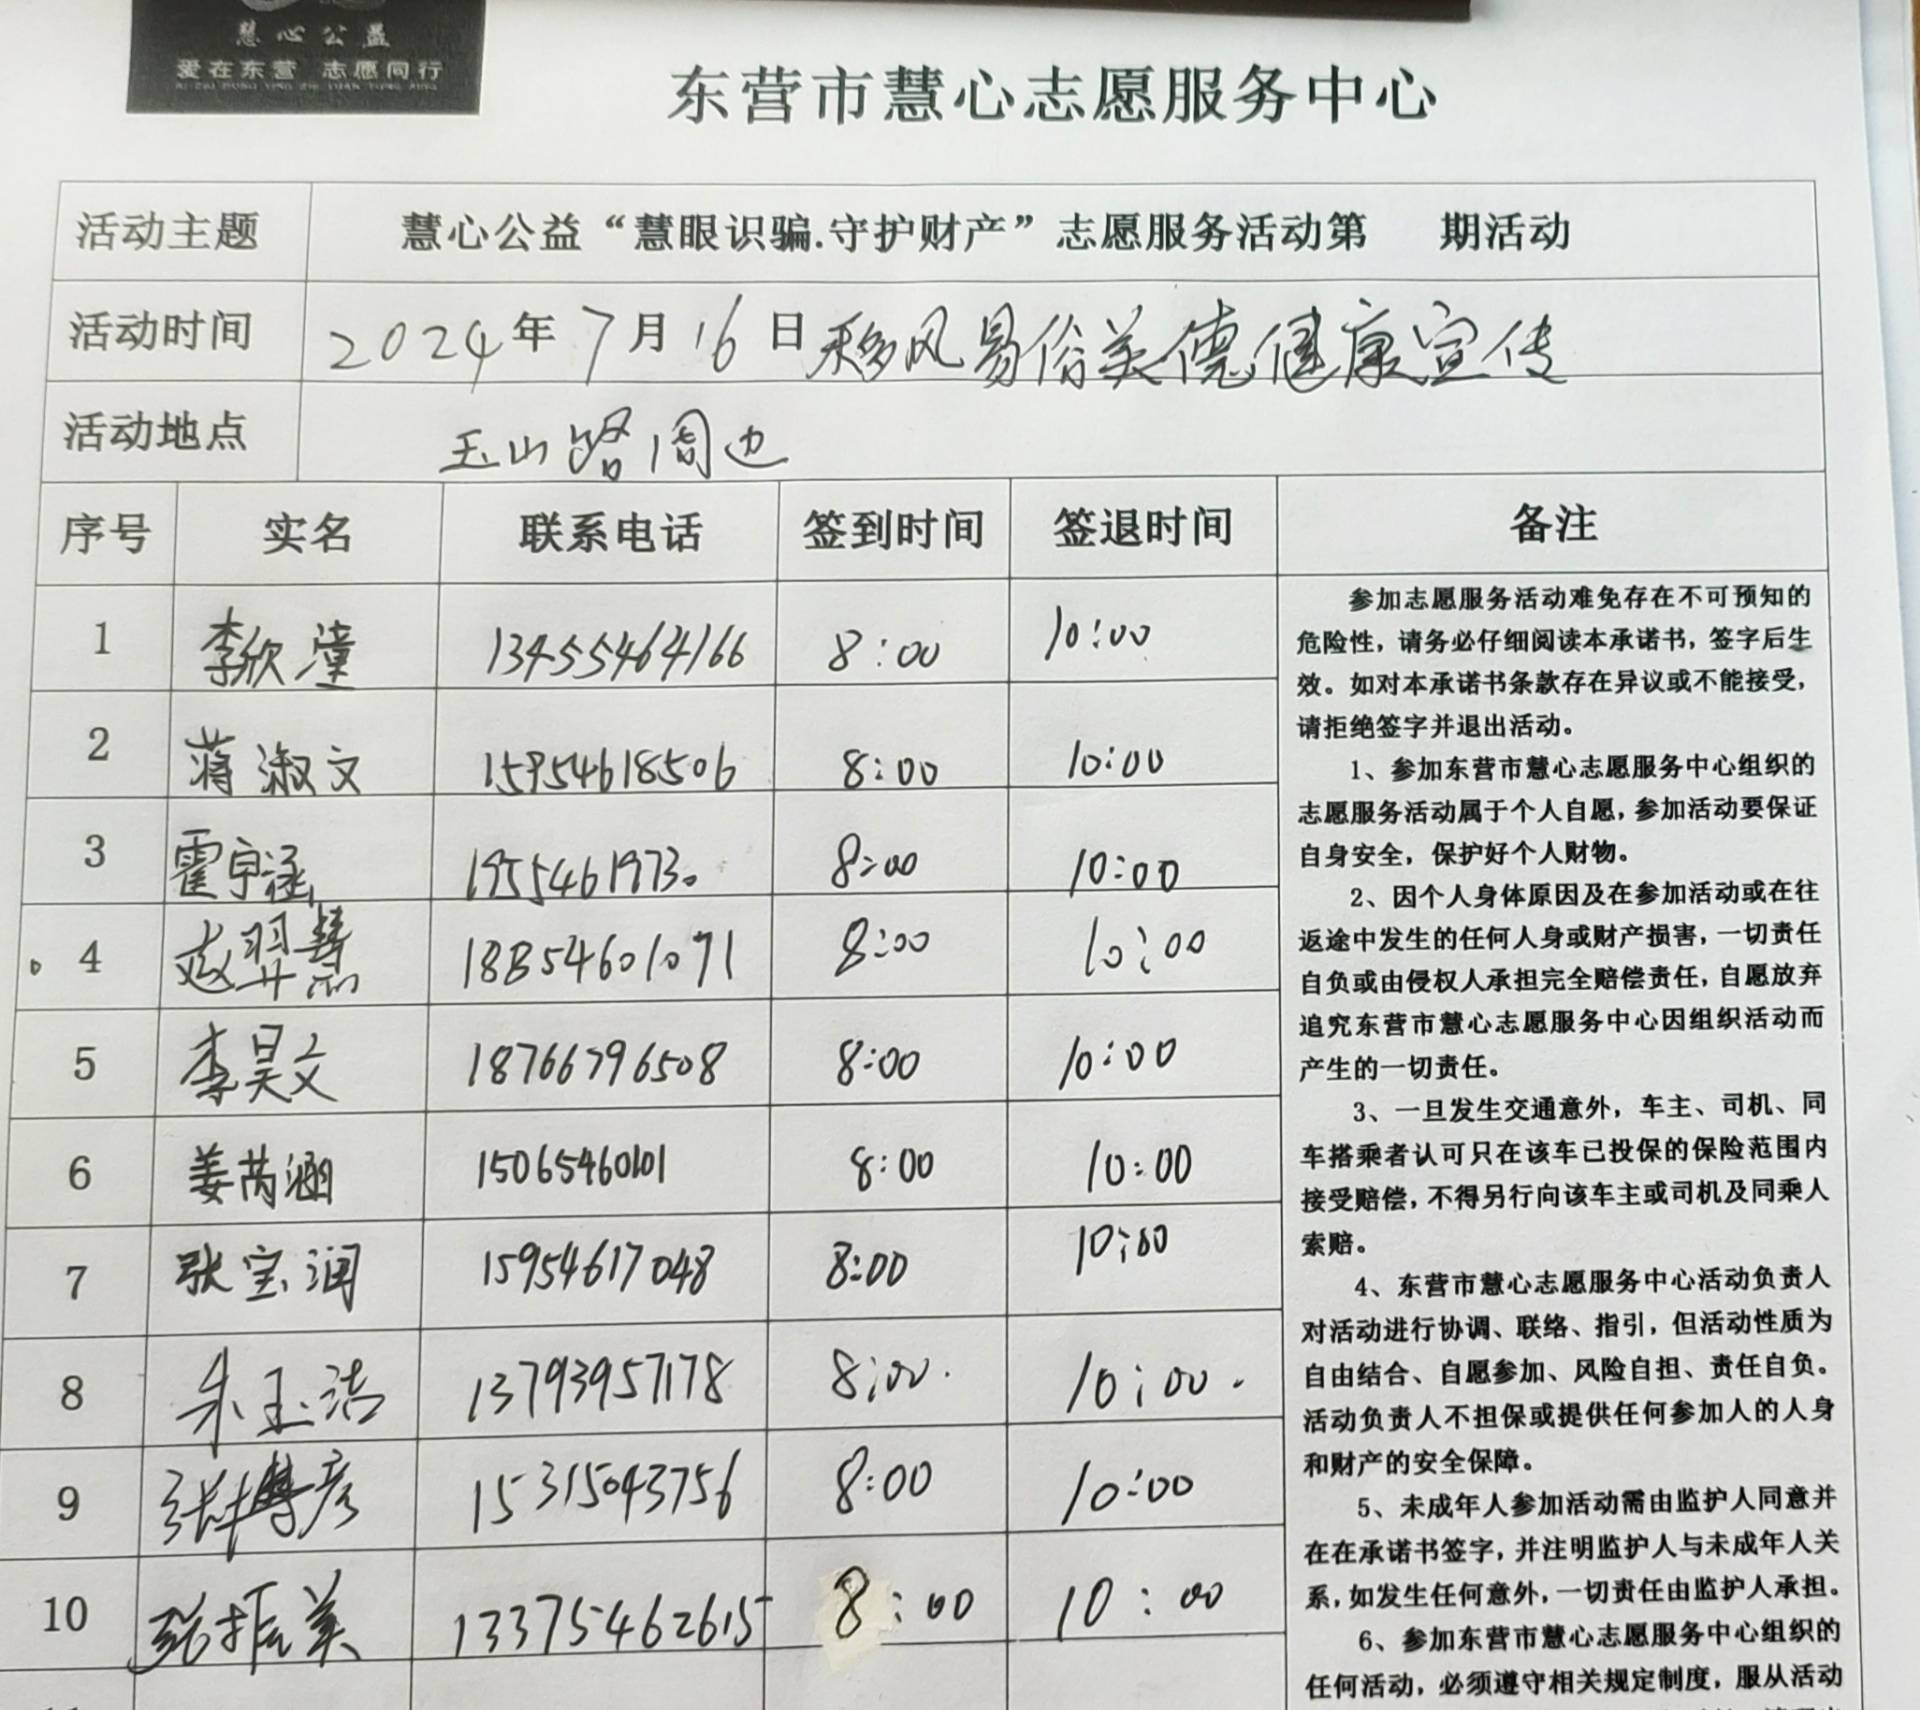 慧心公益
爱在东营 志愿同行
AI ZAI DONG YING ZHI YUAN TONG XING
东营市慧心志愿服务中心
活动主题 慧心公益“慧眼识骗.守护财产”志愿服务活动第 期活动
活动时间 2024年7月16日移风易俗美德健康宣传
活动地点 玉山路周边
序号 实名 联系电话 签到时间 签退时间 备注
1 李欣潼 13455464166 8:00 10:00
2 蒋淑文 15954618506 8:00 10:00
3 霍宇涵 19554619730 8:00 10:00
4 赵羿慧 18854601071 8:00 10:00
5 李昊文 18766796508 8:00 10:00
6 姜芮涵 15065460101 8:00 10:00
7 张宝润 15954617048 8:00 10:00
8 朱玉洁 13793957178 8:00. 10:00.
9 张博彦 15315043756 8:00 10:00
10 张振美 13375462615 8:00 10:00
参加志愿服务活动难免存在不可预知的
危险性，请务必仔细阅读本承诺书，签字后生
效。如对本承诺书条款存在异议或不能接受，
请拒绝签字并退出活动。
1、参加东营市慧心志愿服务中心组织的
志愿服务活动属于个人自愿，参加活动要保证
自身安全，保护好个人财物。
2、因个人身体原因及在参加活动或在往
返途中发生的任何人身或财产损害，一切责任
自负或由侵权人承担完全赔偿责任，自愿放弃
追究东营市慧心志愿服务中心因组织活动而
产生的一切责任。
3、一旦发生交通意外，车主、司机、同
车搭乘者认可只在该车已投保的保险范围内
接受赔偿，不得另行向该车主或司机及同乘人
索赔。
4、东营市慧心志愿服务中心活动负责人
对活动进行协调、联络、指引，但活动性质为
自由结合、自愿参加、风险自担、责任自负。
活动负责人不担保或提供任何参加人的人身
和财产的安全保障。
5、未成年人参加活动需由监护人同意并
在在承诺书签字，并注明监护人与未成年人关
系，如发生任何意外，一切责任由监护人承担。
6、参加东营市慧心志愿服务中心组织的
任何活动，必须遵守相关规定制度，服从活动